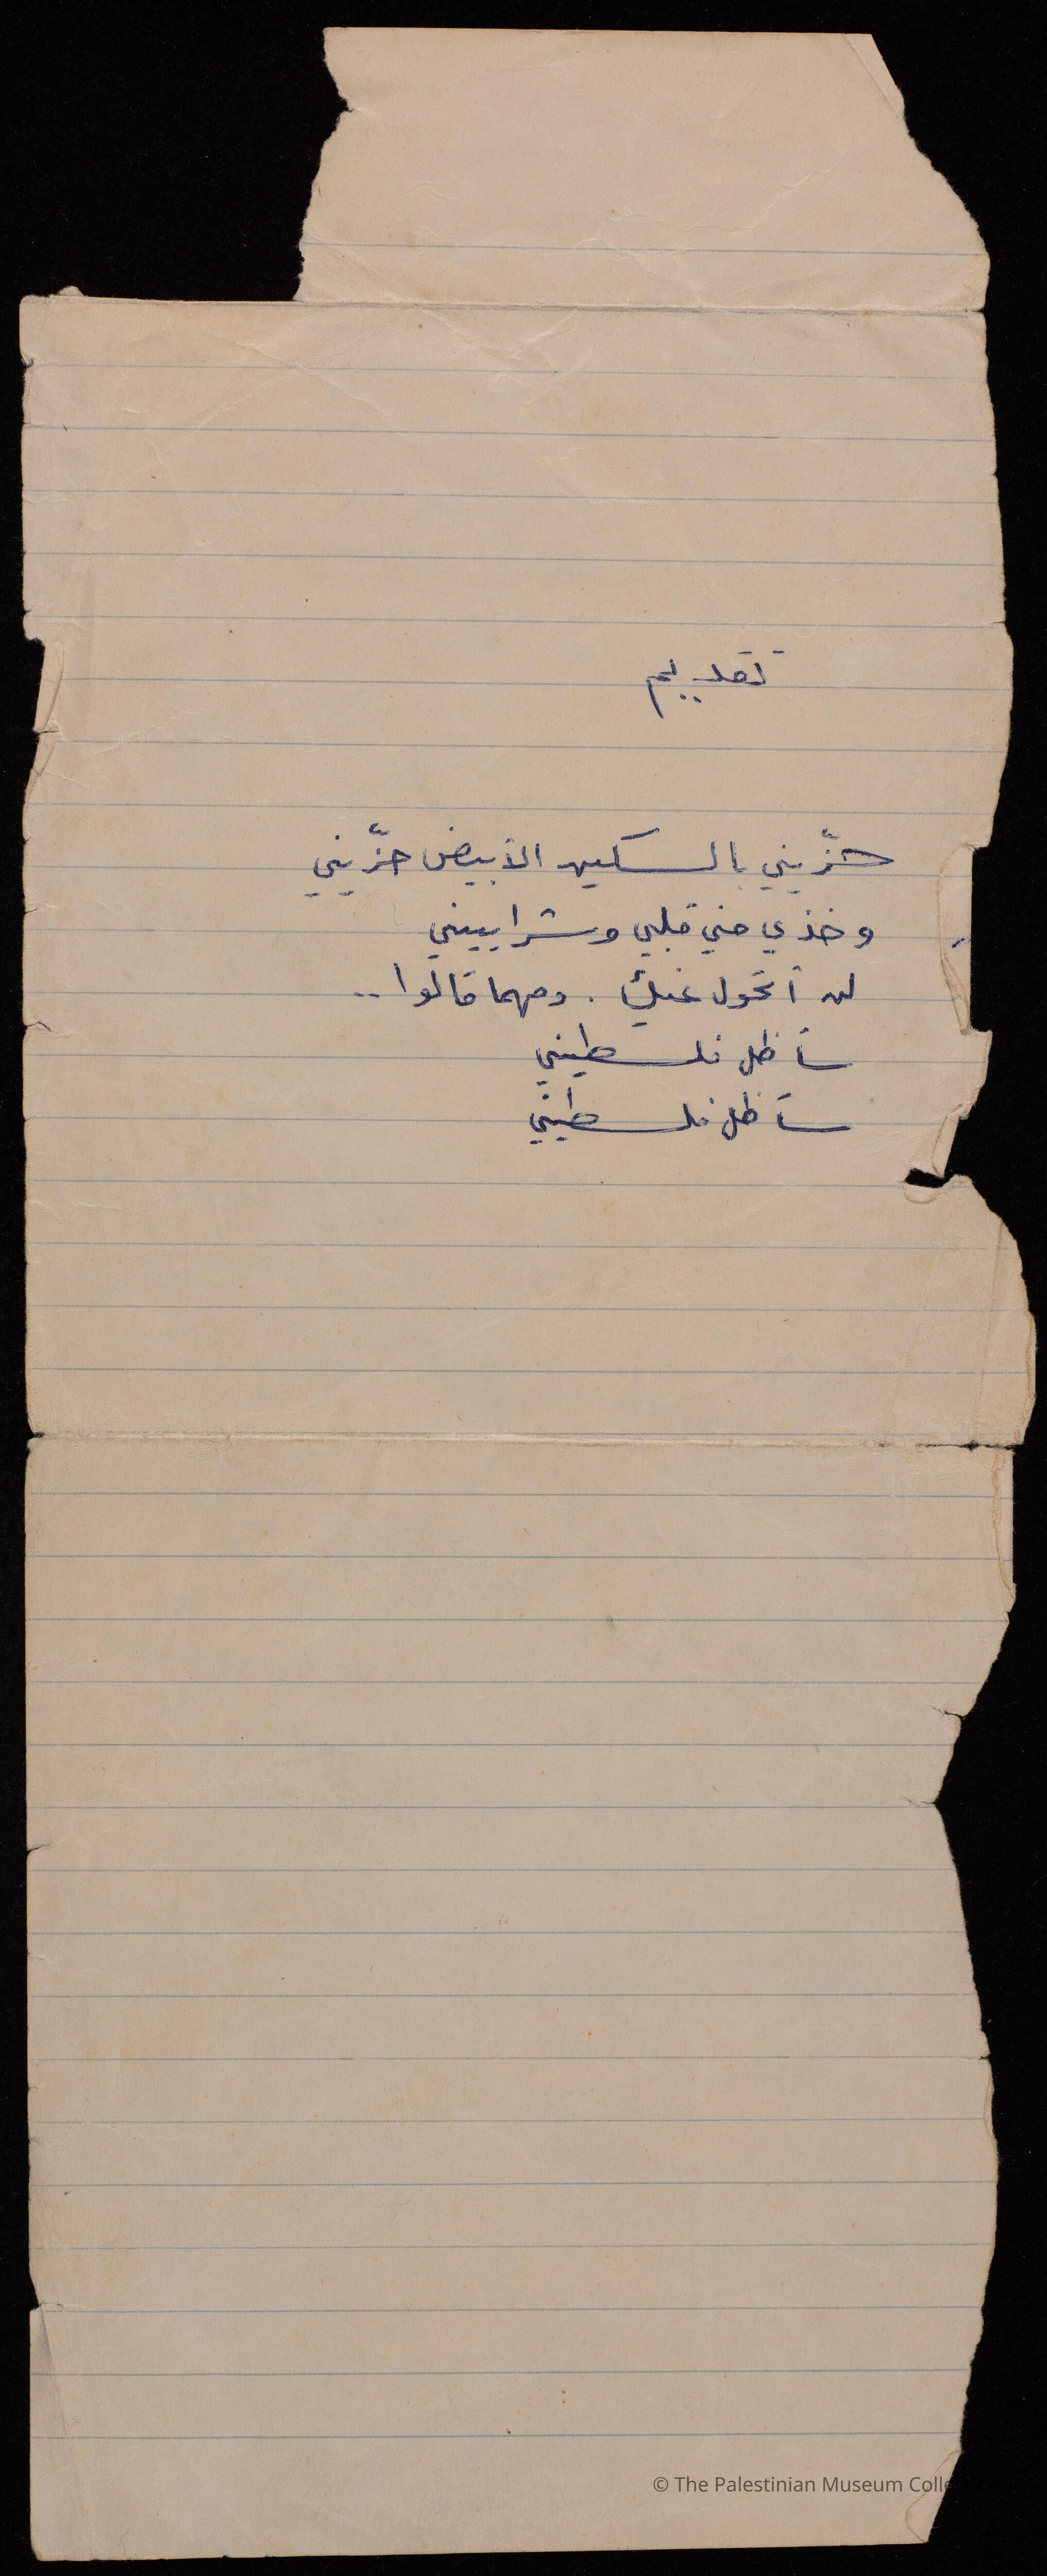 تقديم
حزّيني بالسكين الأبيض حزّيني
وخذي مني قلبي وشراييني
لن أتحول عنك . ومهما قالوا ..
سأظل فلسطيني
سأظل فلسطيني
© The Palestinian Museum Colle